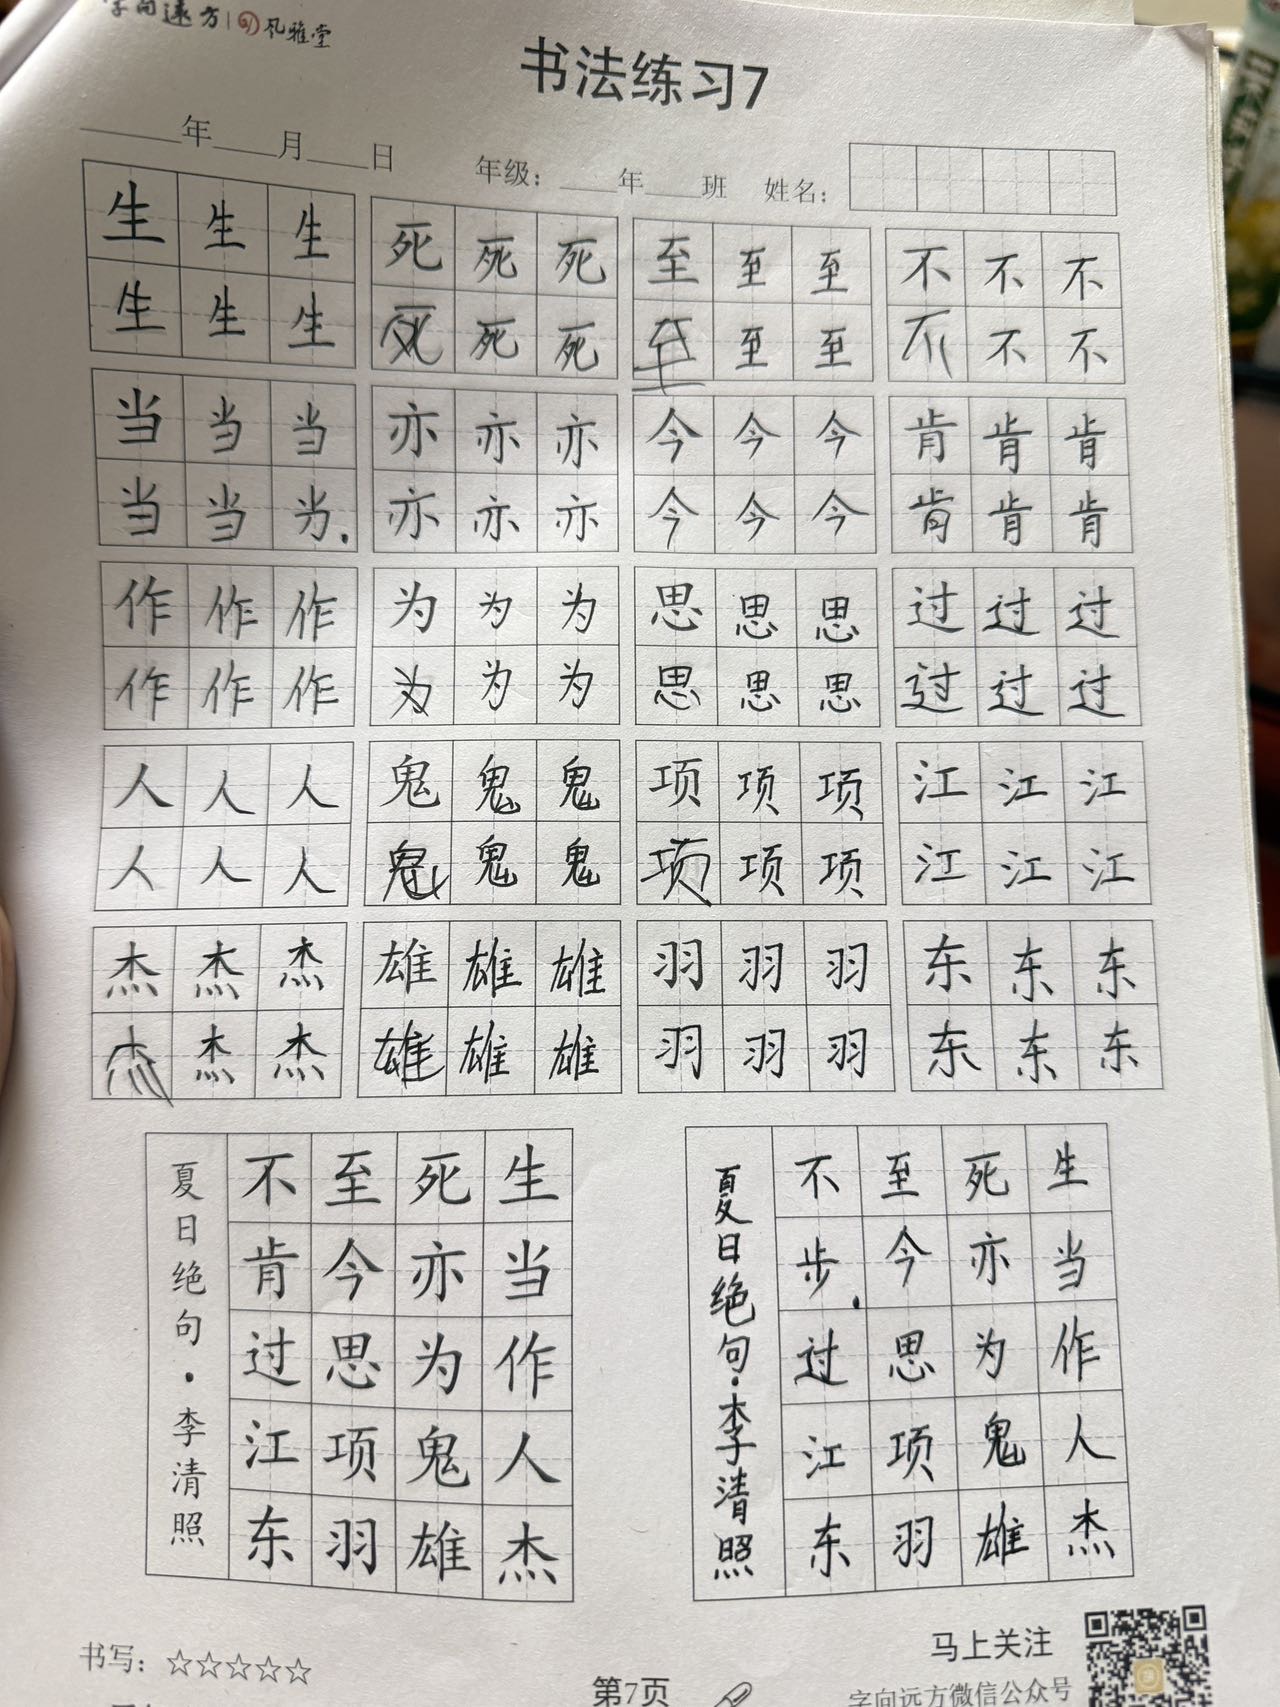 字向远方 风雅堂
书法练习7
年 月 日 年级： 年 班 姓名：
生生生 死死死 至至至 不不不
生生生 死死死 至至至 不不不
当当当 亦亦亦 今今今 肯肯肯
当当 亦亦亦 今今今 肯肯肯
作作作 为为为 思思思 过过过
作作作 为为为 思思思 过过过
人人人 鬼鬼鬼 项项项 江江江
人人人 鬼鬼鬼 项项项 江江江
杰杰杰 雄雄雄 羽羽羽 东东东
杰杰杰 雄雄雄 羽羽羽 东东东
生当作人杰
死亦为鬼雄
至今思项羽
不肯过江东
夏日绝句·李清照
生当作人杰
死亦为鬼雄
至今思项羽
不步过江东
夏日绝句·李清照
书写：☆☆☆☆☆
第7页
马上关注
字向远方微信公众号